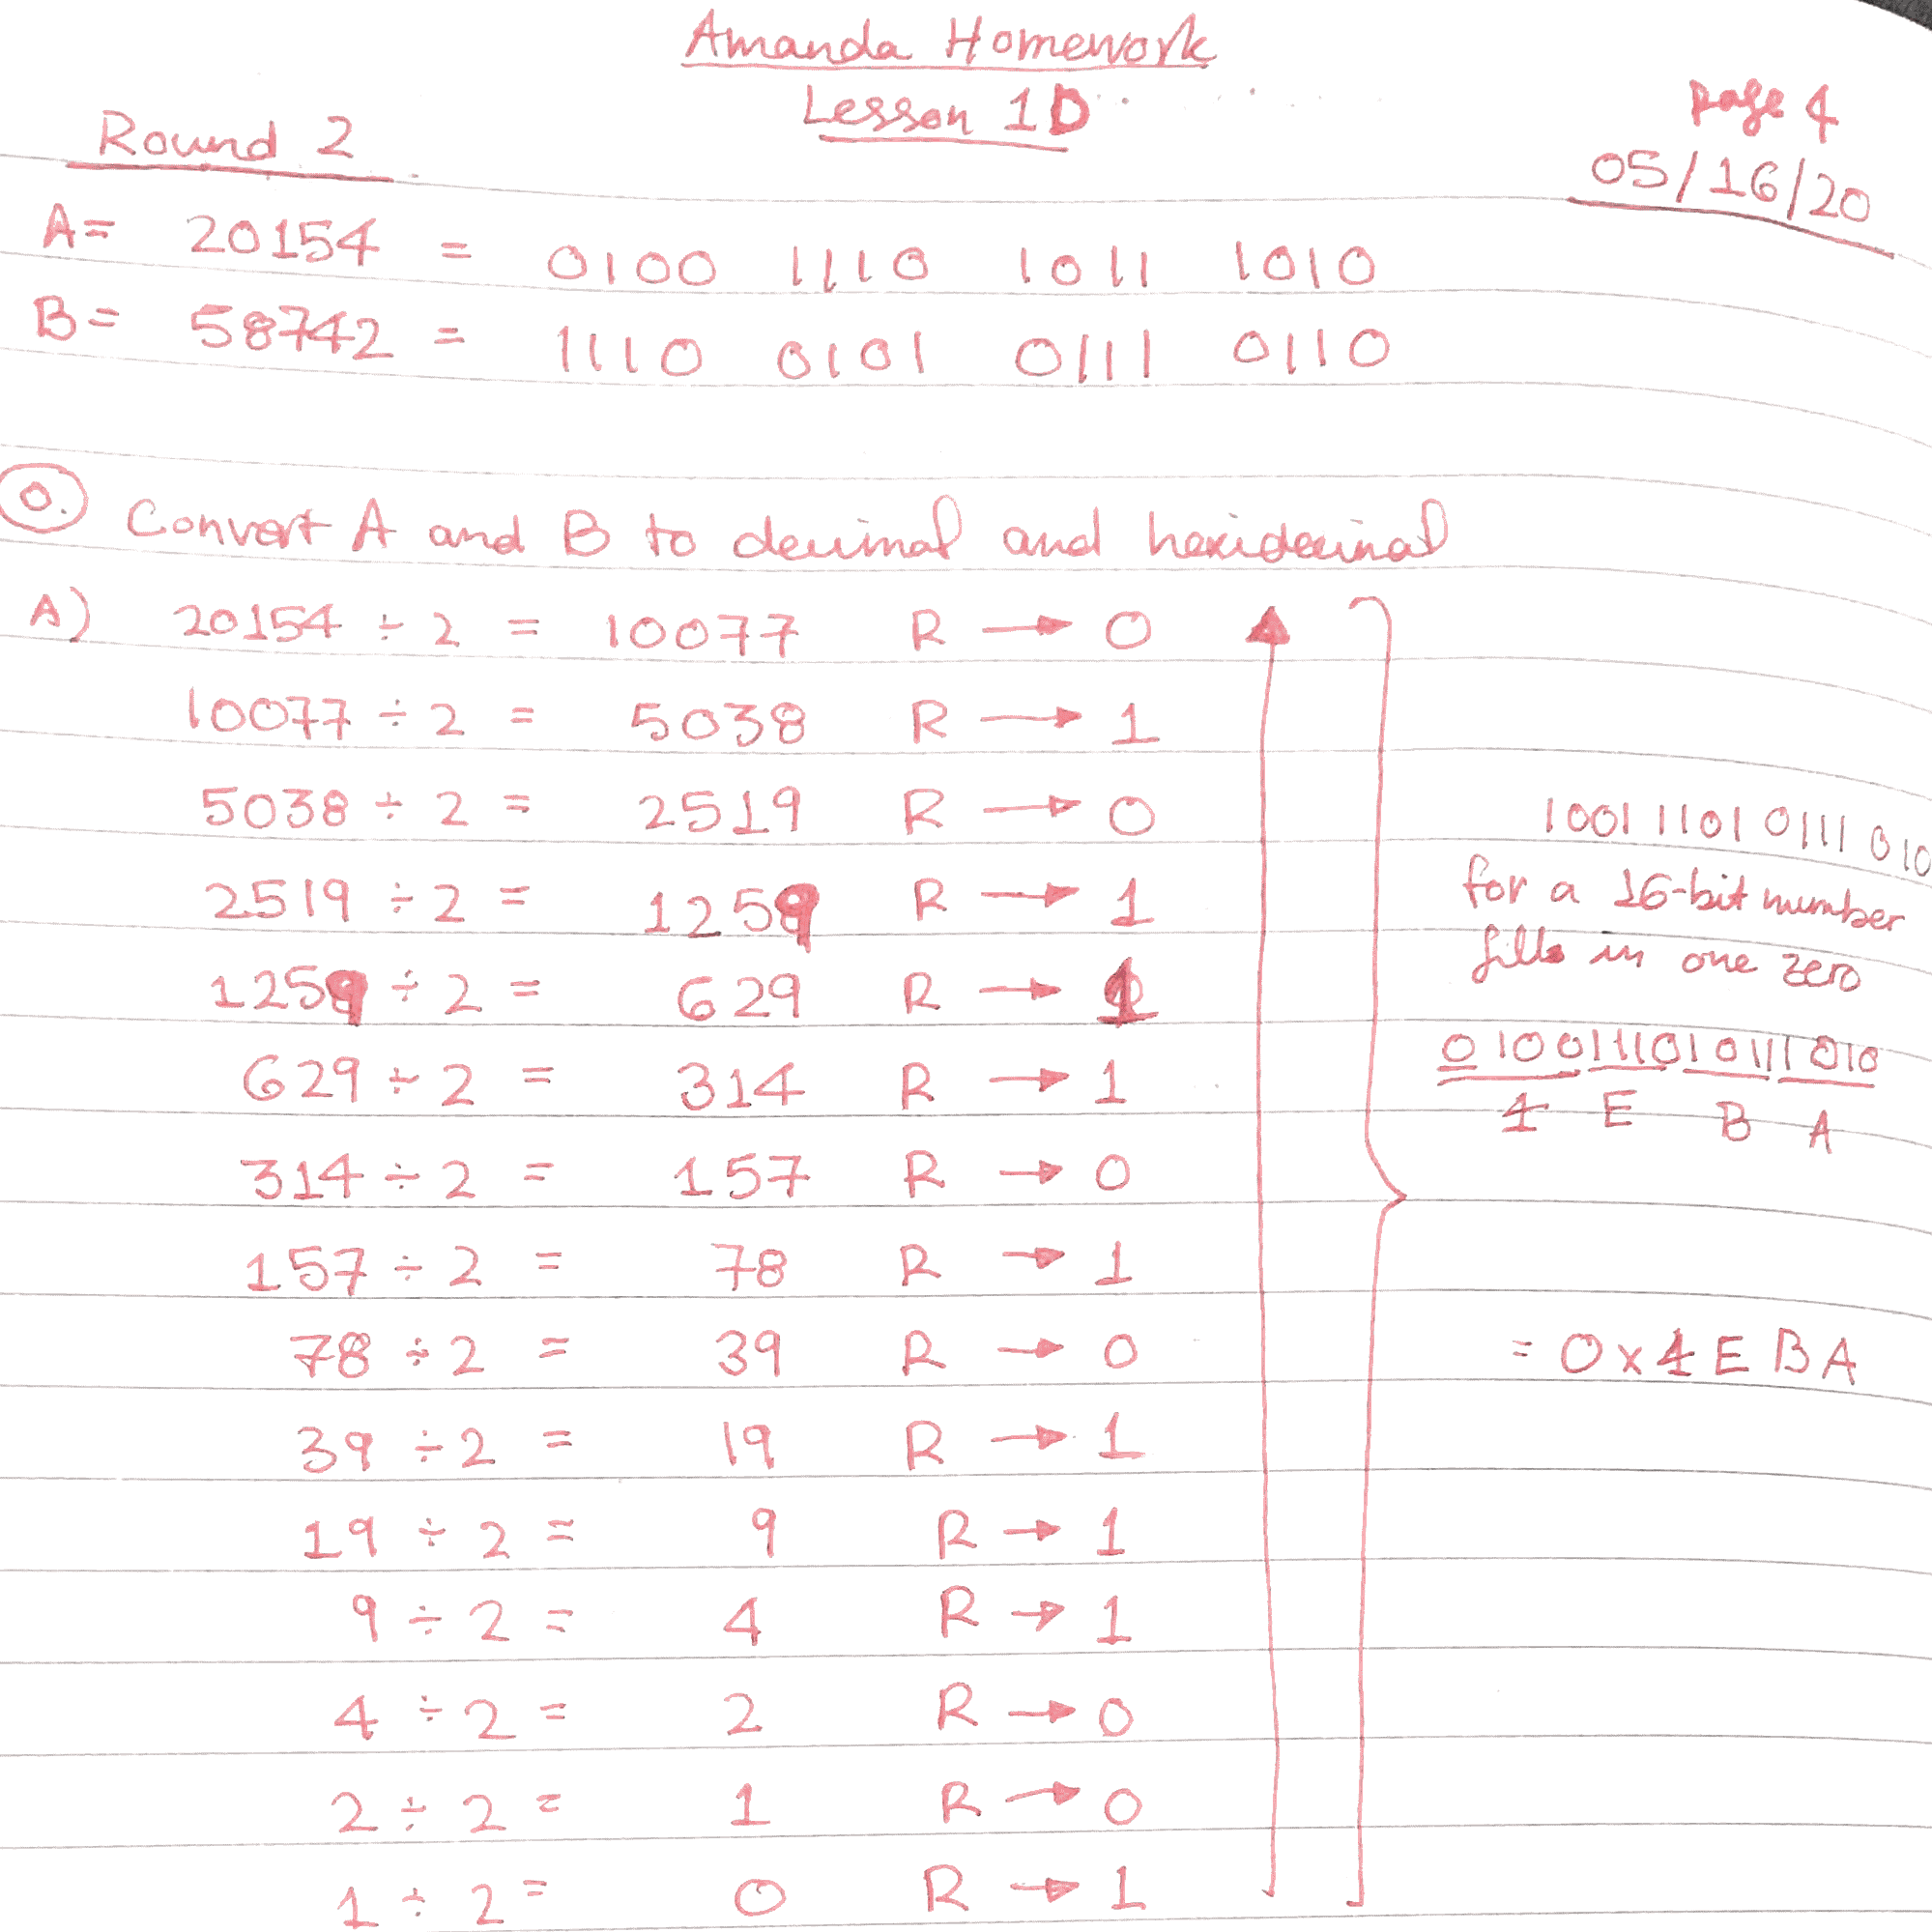 Amanda Homework
Lesson 1D
page 4
05/16/20
Round 2
A= 20154 = 0100 1110 1011 1010
B= 58742 = 1110 0101 0111 0110
Q. Convert A and B to decimal and hexidecimal
A) 20154 ÷ 2 = 10077 R → 0
10077 ÷ 2 = 5038 R → 1
5038 ÷ 2 = 2519 R → 0
2519 ÷ 2 = 1259 R → 1
1259 ÷ 2 = 629 R → 1
629 ÷ 2 = 314 R → 1
314 ÷ 2 = 157 R → 0
157 ÷ 2 = 78 R → 1
78 ÷ 2 = 39 R → 0
39 ÷ 2 = 19 R → 1
19 ÷ 2 = 9 R → 1
9 ÷ 2 = 4 R → 1
4 ÷ 2 = 2 R → 0
2 ÷ 2 = 1 R → 0
1 ÷ 2 = 0 R → 1
1001 1101 0111 010
for a 16-bit number
fills in one zero
0100111010111010
4 E B A
= 0x4EBA